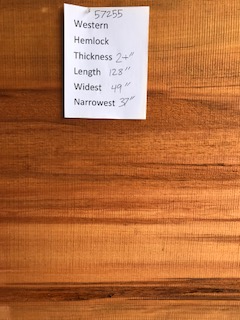 57255
Western
Hemlock
Thickness 2+"
Length 128"
Widest 49"
Narrowest 37"